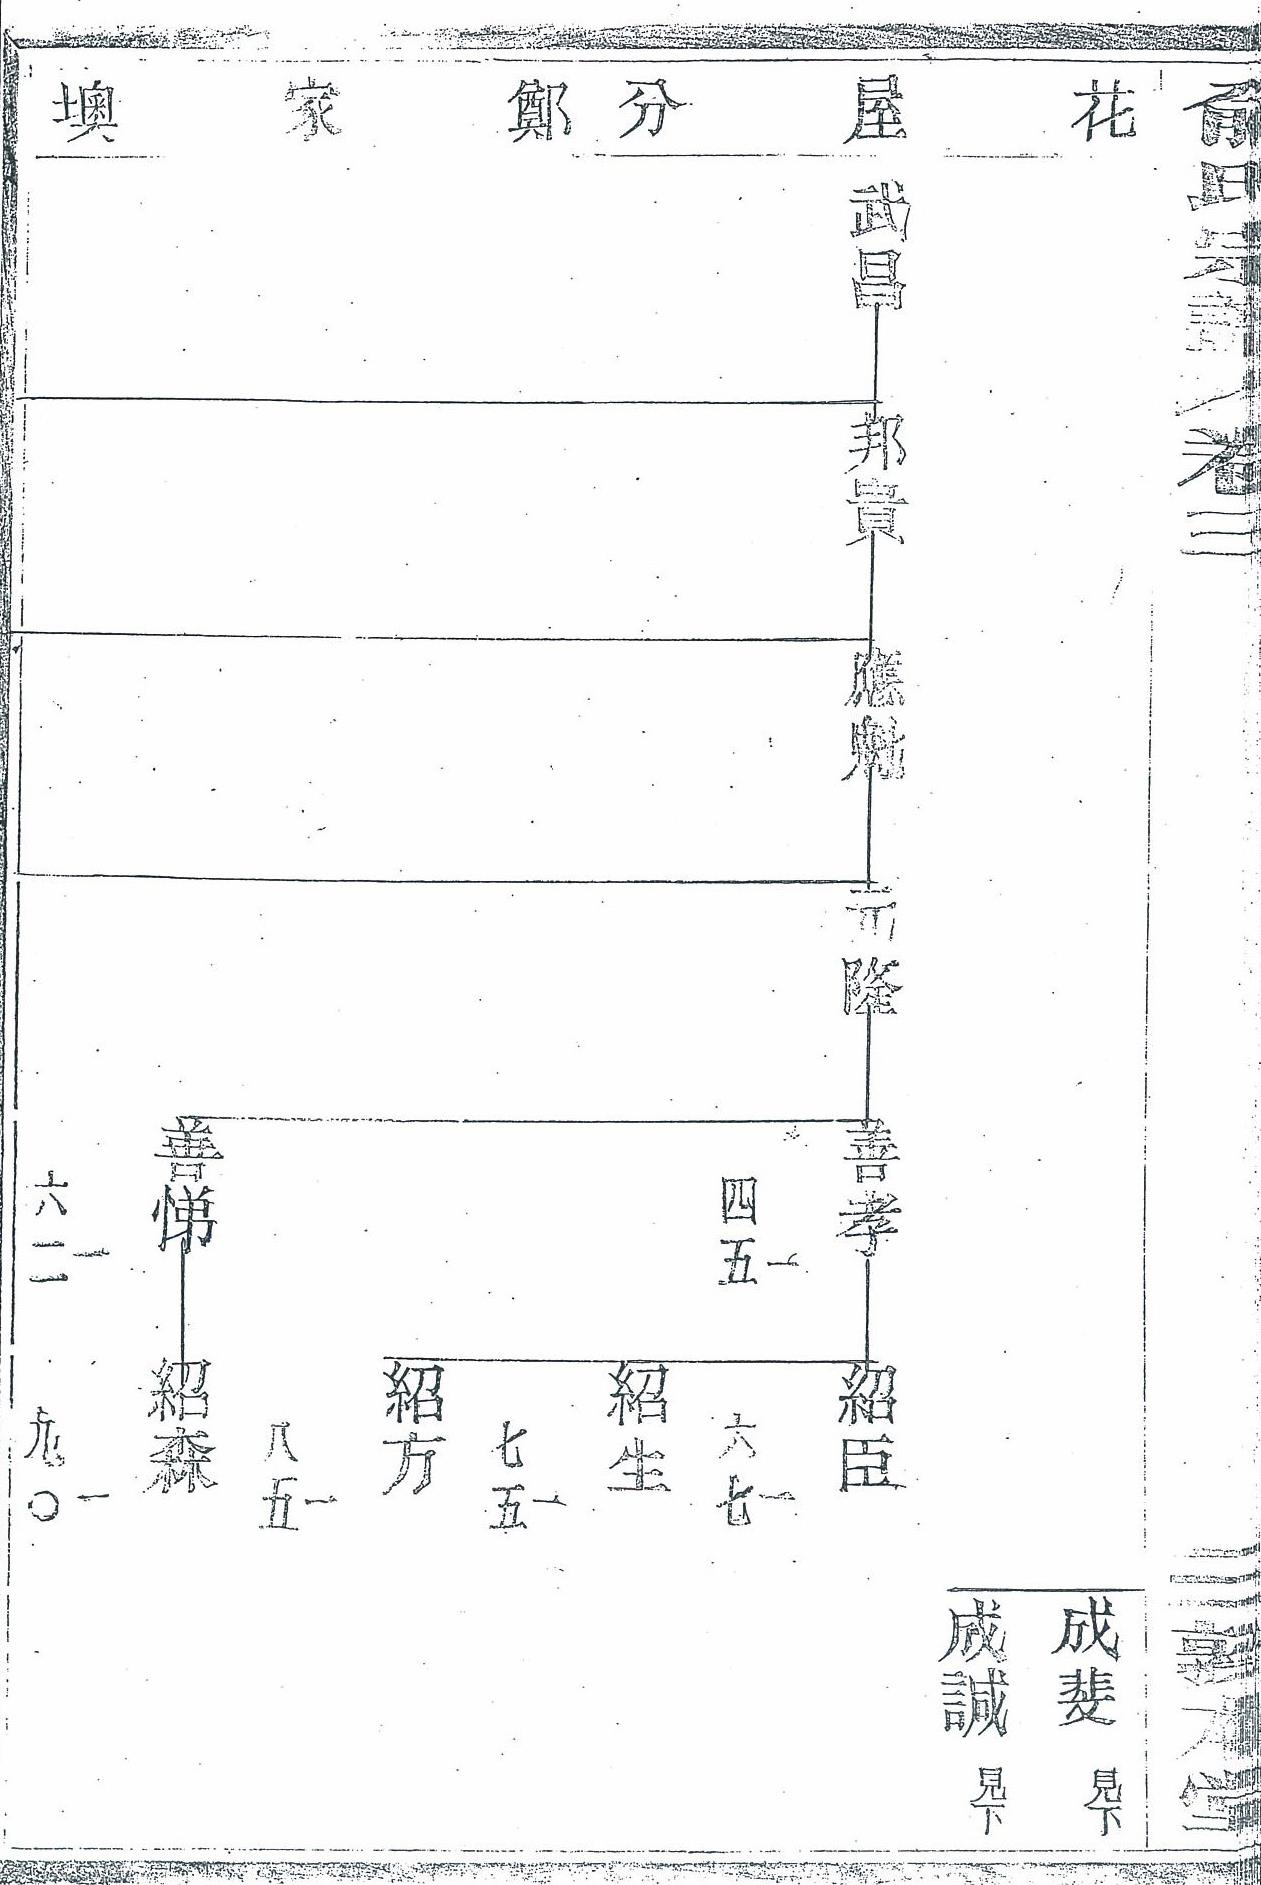 俞氏宗譜 卷三
敦本堂
花屋分鄭家墺
成斐 見下
成諴 見下
武昌
邦貴
應魁
元隆
善孝
一四五
紹臣
一六七
紹生
一七五
紹方
一八五
善悌
一六二
紹森
一九〇